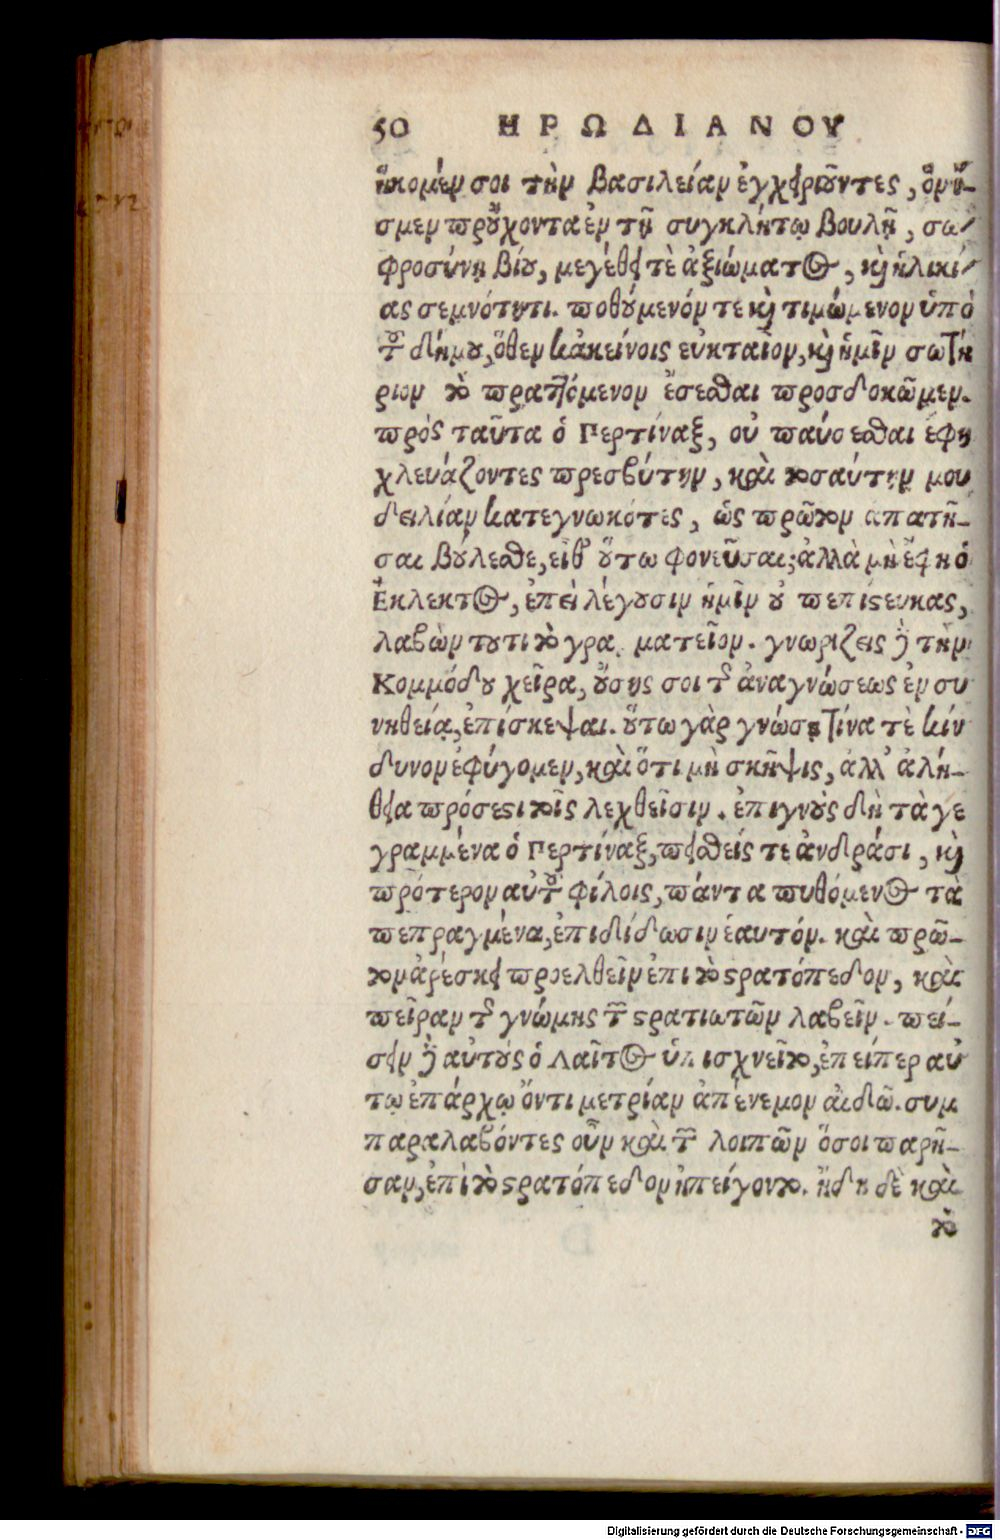 50 ΗΡΩΔΙΑΝΟΥ
ἥκομέν σοι τὴν βασιλείαν ἐγχειριοῦντες, ὃν ἴ-
σμεν προὔχοντα ἐν τῇ συγκλήτῳ βουλῇ, σω-
φροσύνῃ βίου, μεγέθει τὲ ἀξιώματος, καὶ ἡλικί-
ας σεμνότητι. ποθούμενόν τε καὶ τιμώμενον ὑπὸ
τοῦ δήμου, ὅθεν κἀκείνοις εὐκταῖον, καὶ ἡμῖν σωτή
ριον τὸ πραττόμενον ἔσεσθαι προσδοκῶμεν.
πρὸς ταῦτα ὁ Περτίναξ, οὐ παύσεσθαι ἔφη
χλευάζοντες πρεσβύτην, καὶ τοσαύτην μου
δειλίαν κατεγνωκότες, ὡς πρῶτον απατῆ-
σαι βούλεσθε, εἶθ' οὕτω φονεῦσαι; ἀλλὰ μὴ ἔφη ὁ
Ἔκλεκτος, ἐπεὶ λέγουσιν ἡμῖν οὐ πεπίστευκας,
λαβὼν τουτὶ τὸ γραματεῖον. γνωρίζεις δὲ τὴν
Κομμόδου χεῖρα, οὔσης σοι τῆς ἀναγνώσεως ἐν συ
νηθείᾳ, ἐπίσκεψαι. οὕτω γὰρ γνώσῃ τίνα τὲ κίν
δυνον ἐφύγομεν, καὶ ὅτι μὴ σκῆψις, ἀλλ' ἀλή-
θεια πρόσεστι τοῖς λεχθεῖσιν. ἐπιγνοὺς δὴ τὰ γε
γραμμένα ὁ Περτίναξ, πεισθείς τε ἀνδράσι, καὶ
πρότερον αὐτοῦ φίλοις, πάντα πυθόμενος τὰ
πεπραγμένα, ἐπιδίδωσιν ἑαυτόν. καὶ πρῶ-
τον ἀρέσκει προελθεῖν ἐπὶ τὸ στρατόπεδον, καὶ
πεῖραν τῆς γνώμης τῶν στρατιωτῶν λαβεῖν. πεί-
σειν δὲ αὐτοὺς ὁ Λαῖτος ὑπισχνεῖτο, ἐπείπερ αὐ
τῳ ἐπάρχῳ ὄντι μετρίαν ἀπένεμον αἰδῶ. συμ
παραλαβόντες οὖν καὶ τῶν λοιπῶν ὅσοι παρῆ-
σαν, ἐπὶ τὸ στρατόπεδον ἠπείγοντο. ἤδη δὲ καὶ
τὸ
Digitalisierung gefördert durch die Deutsche Forschungsgemeinschaft - DFG